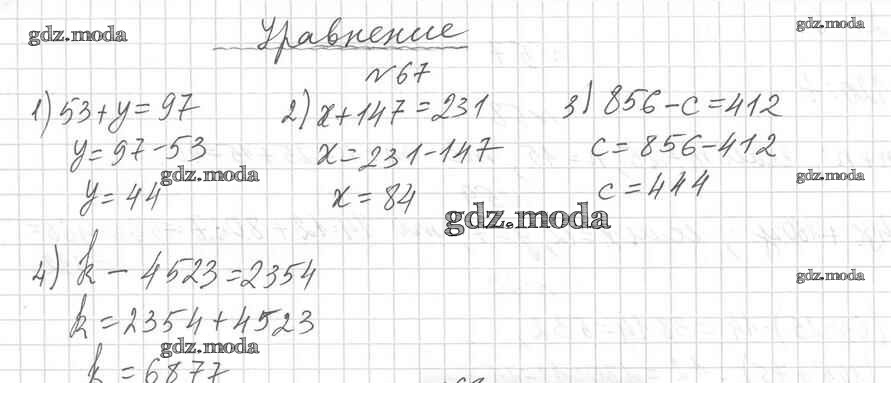 Уравнение
№67
1) 53+y=97
y=97-53
y=44
2) x+147=231
x=231-147
x=84
3) 856-c=412
c=856-412
c=444
4) k-4523=2354
k=2354+4523
k=6877
gdz.moda
gdz.moda
gdz.moda
gdz.moda
gdz.moda
gdz.moda
gdz.moda